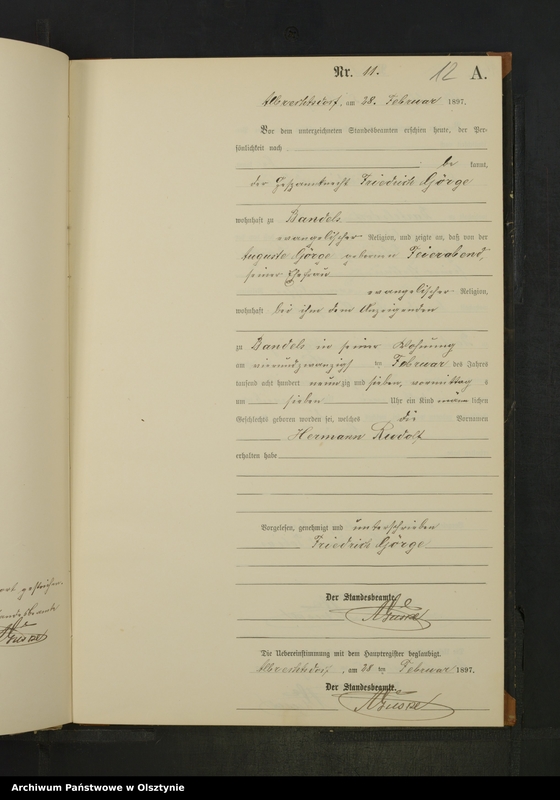 Nr. 11. 12 A.
Albrechtsdorf, am 28. Februar 1897.
Vor dem unterzeichneten Standesbeamten erschien heute, der Per-
sönlichkeit nach
be kannt,
der Gespannknecht Friedrich Görge
wohnhaft zu Bandels
evangelischer Religion, und zeigte an, daß von der
Auguste Görge geborenen Feierabend,
seiner Ehefrau
evangelischer Religion,
wohnhaft bei ihm dem Anzeigenden
zu Bandels in seiner Wohnung
am vierundzwanzigsten Februar des Jahres
tausend acht hundert neunzig und sieben, vormittags
um sieben Uhr ein Kind männlichen
Geschlechts geboren worden sei, welches die Vornamen
Hermann Rudolf
erhalten habe
Vorgelesen, genehmigt und unterschrieben
Friedrich Görge
Der Standesbeamte.
Die Uebereinstimmung mit dem Hauptregister beglaubigt.
Albrechtsdorf, am 28 ten Februar 1897.
Der Standesbeamte.
gestrichen.
Standesbeamte
Archiwum Państwowe w Olsztynie